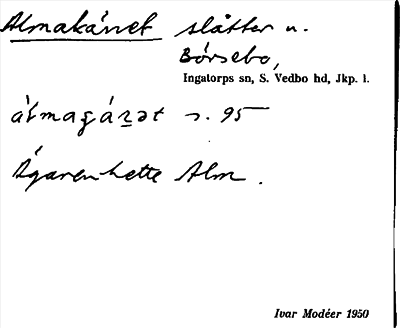 Almakärret slåtter u.
Börsebo,
Ingatorps sn, S. Vedbo hd, Jkp. l.
s. 95
Ägaren hette Alm.
Ivar Modéer 1950